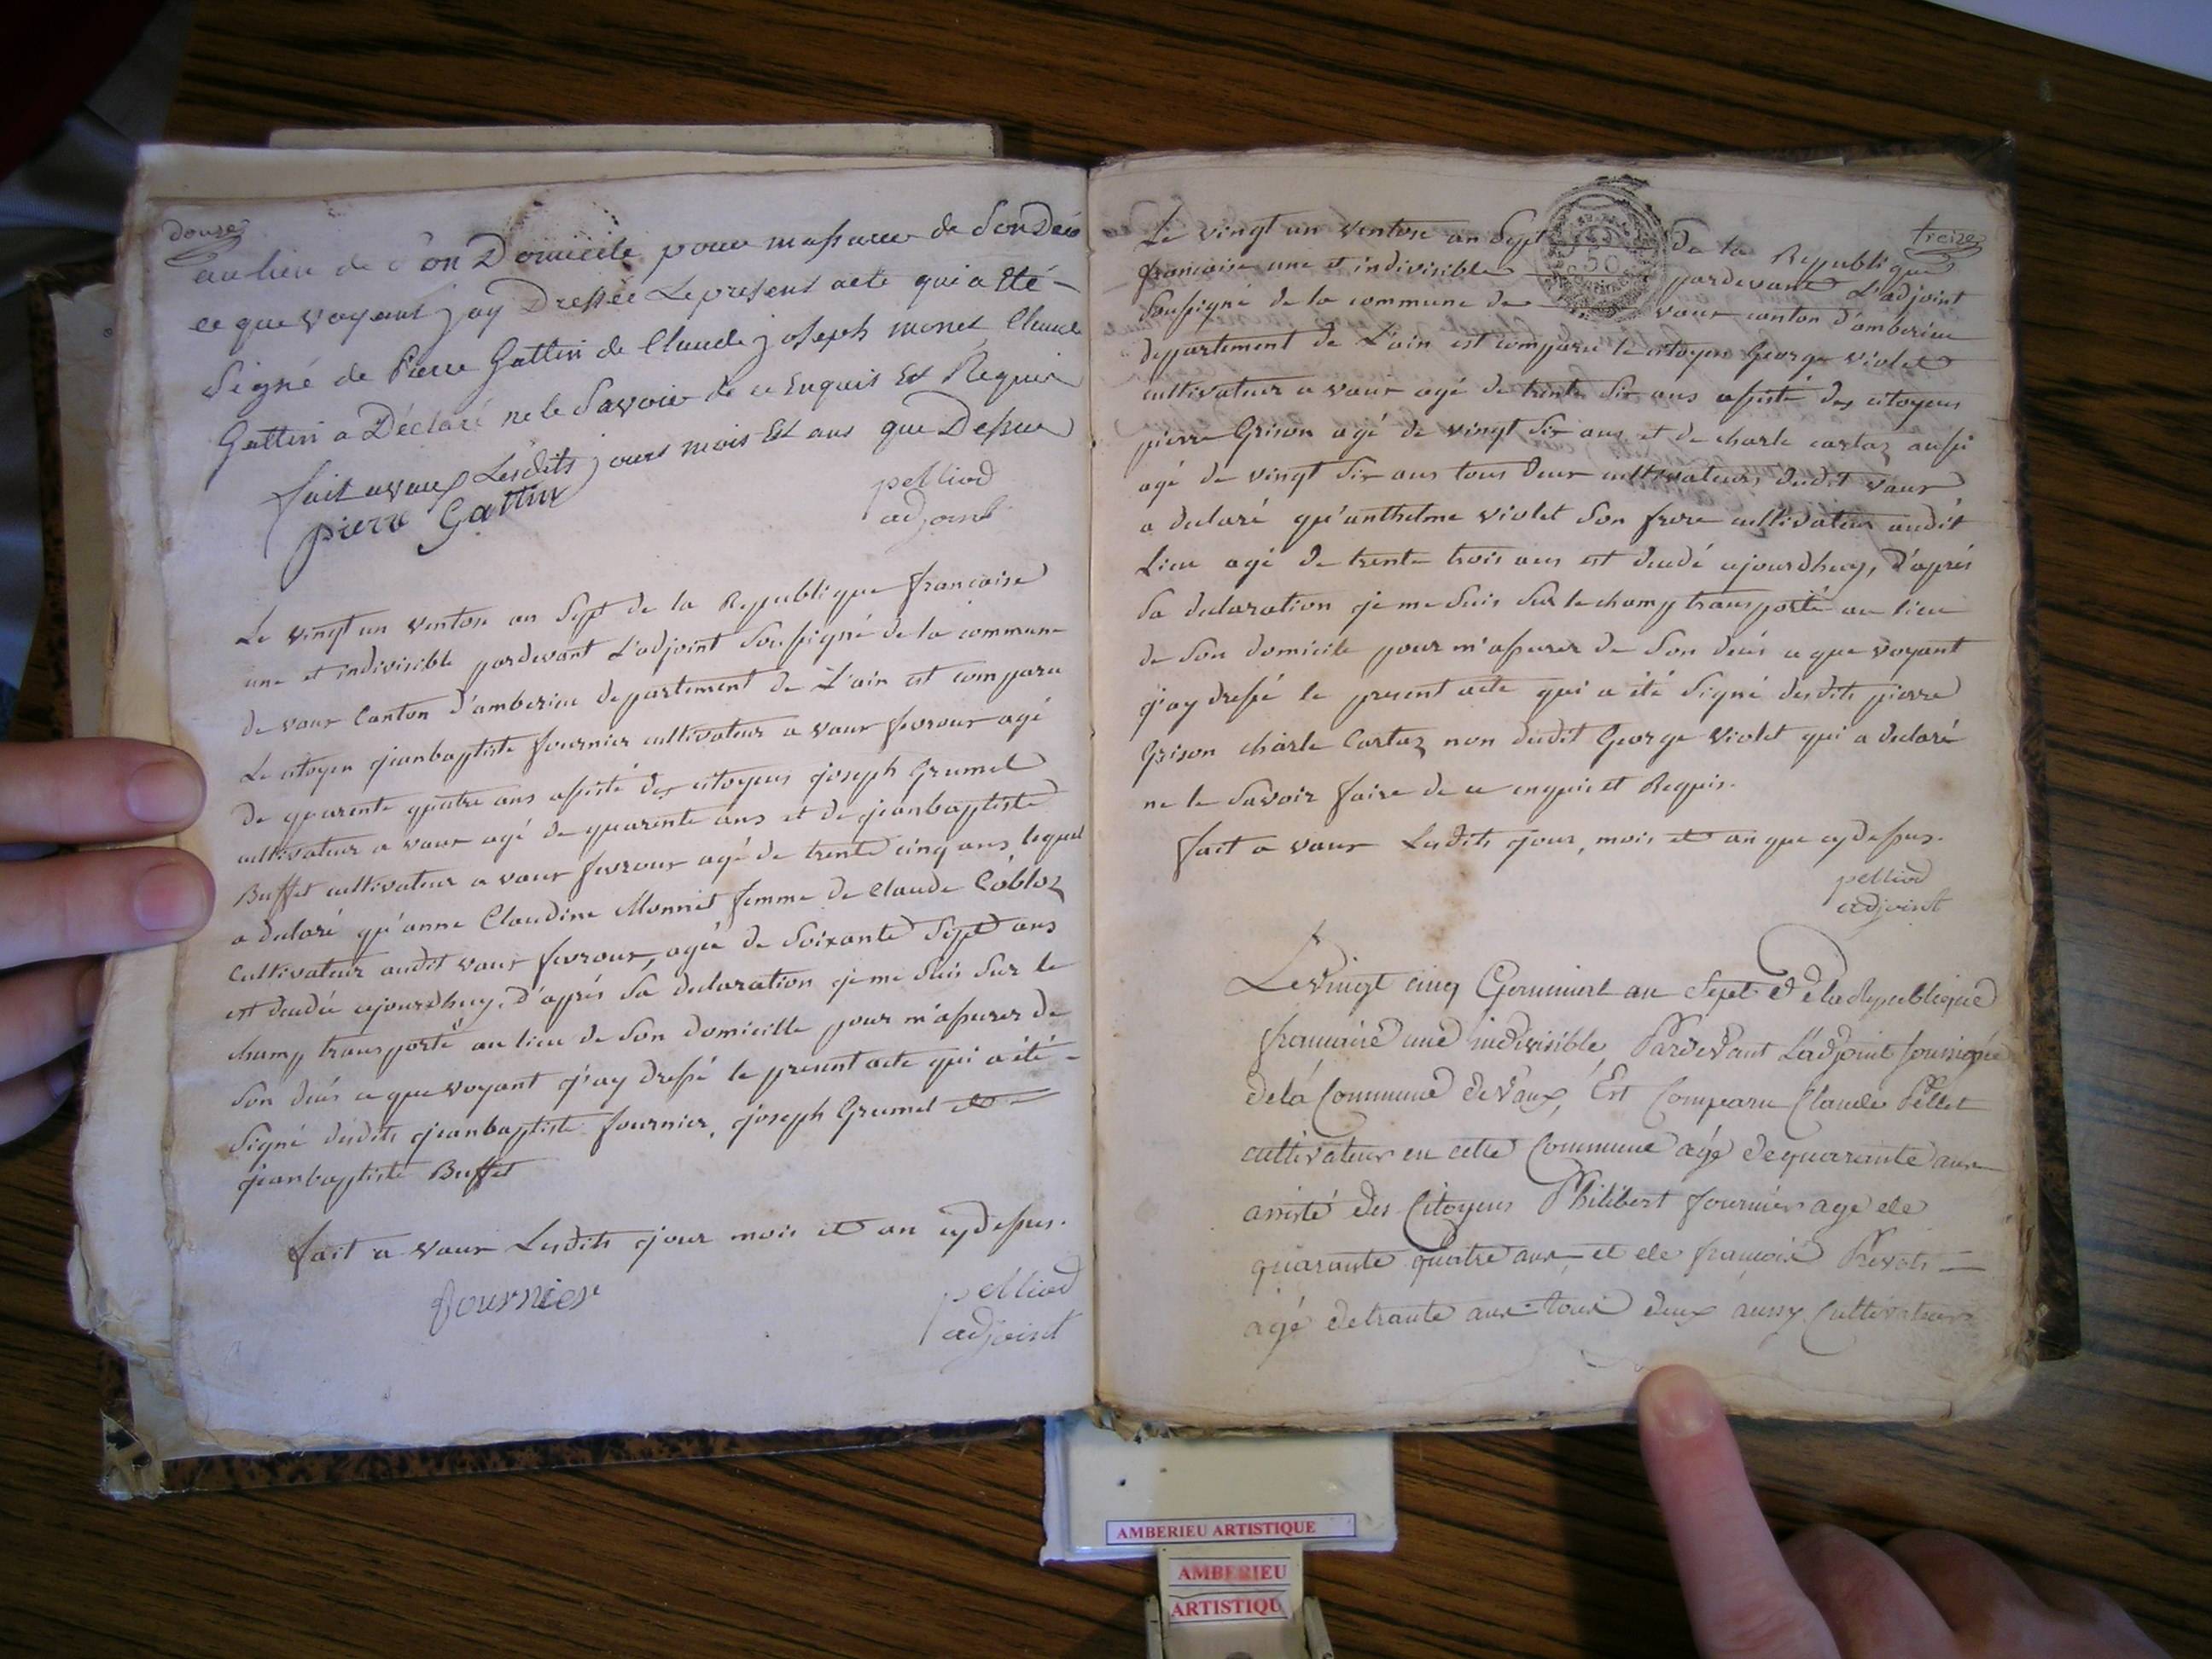 douze
au lieu de son Domicile pour massurer de Son Déce
ce que voyant jay Dressée Le present acte qui a Eté -
Signé de Pierre Gattin de Claude joseph monet, Claude
Gattin a Déclaré ne le Savoir de ce Enquis Et Requis
fait a vaux Lesdits jours mois Et ans que Dessus
pierre Gattin
pelliod
adjoint
Le vingt un ventose an Sept de la Republique francoise
une et indivisible pardevant L'adjoint Soussigné de la commune
de vaux Canton d'amberieu departement de L'ain est comparu
Le citoyen jeanbaptiste fournier cultivateur a vaux fevroux agé
de quarente quatre ans assisté des citoyens joseph Grumel
cultivateur a vaux agé de quarente ans et de jeanbaptiste
Buffet cultivateur a vaux fevroux agé de trente cinq ans, lequel
a declaré qu'anne Claudine Monnet femme de Claude Cobloz
Cultivateur audit vaux fevroux, agée de Soixante Sept ans
est decedée ajourdhuy, d'après Sa declaration je me Suis Sur le
champ transporté au lieu de Son domicille pour m'assurer de
Son decés ce que voyant j'ay dressé le present acte qui a été -
Signé desdits jeanbaptiste fournier, joseph Grumel et
jeanbaptiste Buffet
fait a vaux Lesdits jour mois et an cydessus.
fournier
pelliod
adjoint
treize
Le vingt un ventose an Sept de la Republique
francoise une et indivisible pardevant L'adjoint
Soussigné de la commune de vaux canton d'amberieu
departement de L'ain est comparu le citoyen George violet
cultivateur a vaux agé de trente Six ans assisté des citoyens
pierre Grison agé de vingt Six ans et de charle cartaz aussi
agé de vingt Six ans tous deux cultivateurs dudit vaux
a declaré qu'anthelme violet Son frere cultivateur audit
Lieu agé de trente trois ans est decedé ajourdhuy, d'après
Sa declaration je me Suis Sur le champ transporté au lieu
de Son domicile pour m'assurer de Son decés ce que voyant
j'ay dressé le present acte qui a été Signé desdits pierre
Grison charle Cartaz non dudit George violet qui a declaré
ne le Savoir faire de ce enquis et Requis.
fait a vaux Lesdits jour, mois et an que cydessus.
pelliod
adjoint
Le vingt cinq Germinal an Sept de la Republique
francaise une indivisible, Pardevant L'adjoint soussigné
de la Commune de Vaux, Est Comparu Claude Pellet
cultivateur en cette Commune agé de quarante ans
assisté des Citoyens Philibert fournier age de
quarante quatre ans, et de francois Prevots
agé de trante ans tous deux aussy Cultivateurs
AMBERIEU ARTISTIQUE
AMBERIEU
ARTISTIQU